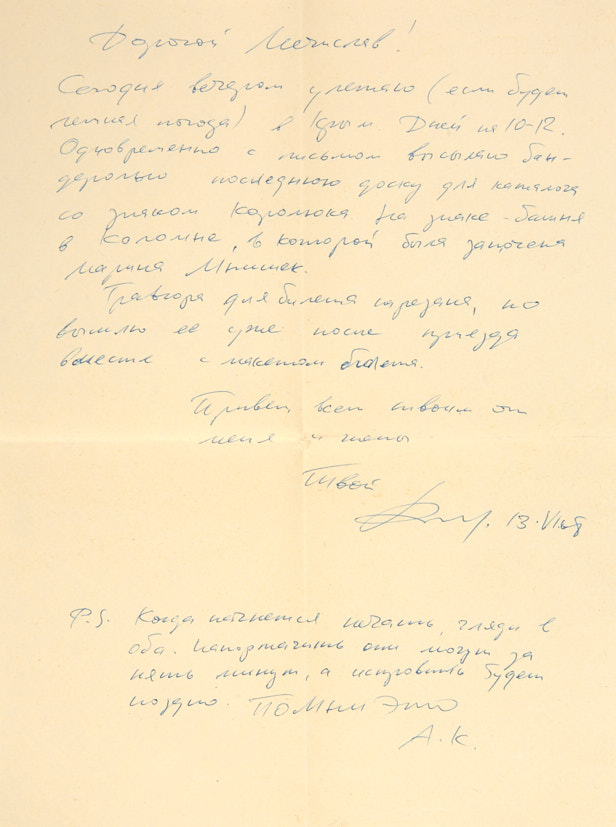 Дорогой Мечислав!
Сегодня вечером улетаю (если будет
летная погода) в Крым. Дней на 10-12.
Одновременно с письмом высылаю бан-
деролью последнюю доску для каталога
со знаком Королюка. На знаке - башня
в Коломне, в которой была заточена
Марина Мнишек.
Гравюра для билета нарезана, но
вышлю её уже после приезда
вместе с макетом билета.
Привет всем твоим от
меня и жены
Твой
13.VI
P.S. Когда начнется печать, гляди в
оба. Напортачить они могут за
пять минут, а исправить будет
поздно. ПОМНИ ЭТО
А.К.